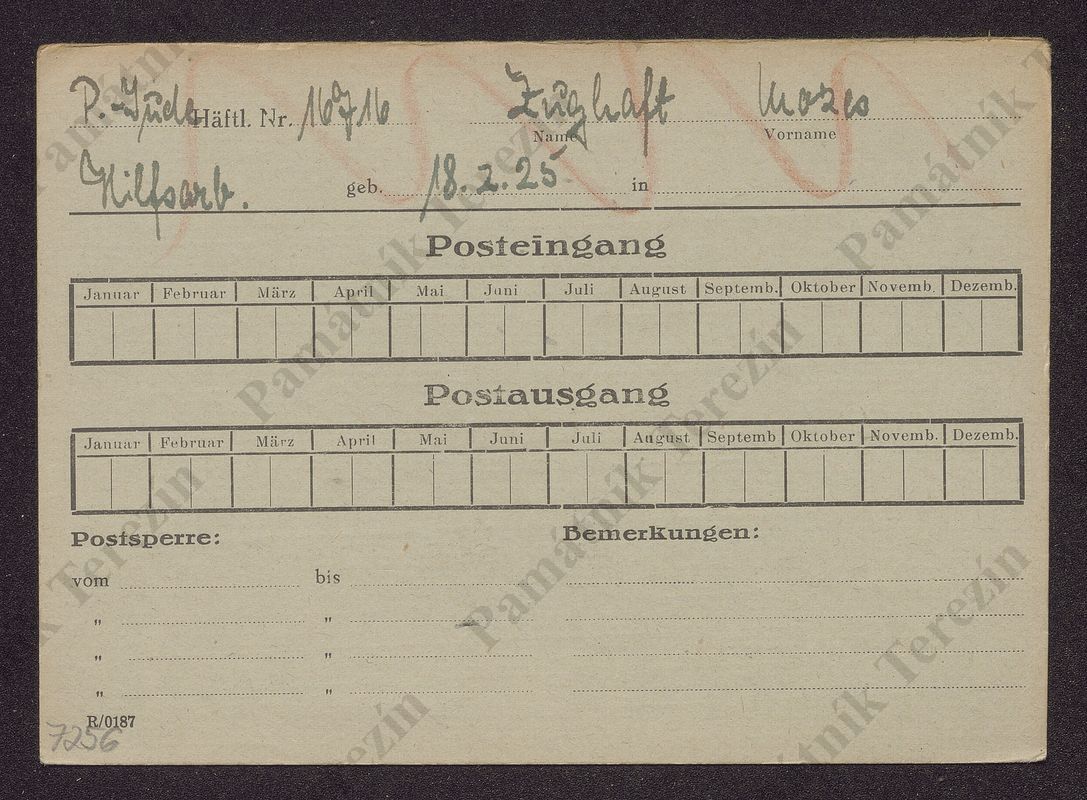 P.-Jude Häftl. Nr. 16716 Zughaft Mozes
Name Vorname
Hilfsarb. geb. 18. 2. 25 in
Posteingang
Januar Februar März April Mai Juni Juli August Septemb. Oktober Novemb. Dezemb.
Postausgang
Januar Februar März April Mai Juni Juli August Septemb Oktober Novemb. Dezemb.
Postsperre: Bemerkungen:
vom bis
" "
" "
" "
R/0187
7256
Památník Terezín